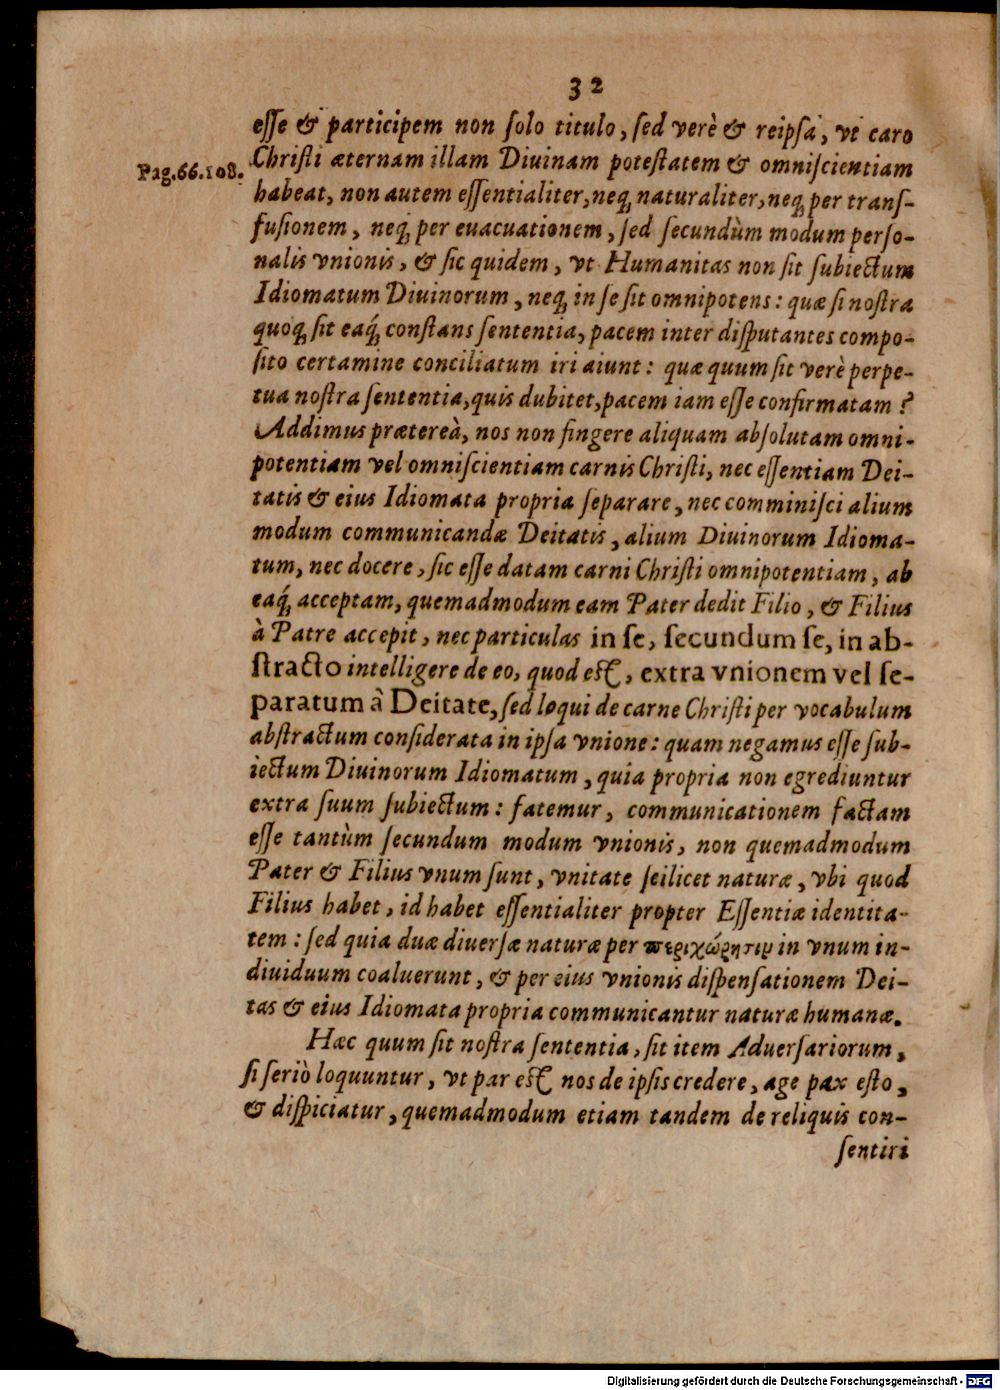 32
eſſe & participem non ſolo titulo, ſed verè & reipſa, vt caro
Pag.66.108.
Chriſti æternam illam Diuinam poteſtatem & omniſcientiam
habeat, non autem eſſentialiter, neq; naturaliter, neq; per tranſ-
fuſionem, neq; per euacuationem, ſed ſecundùm modum perſo-
nalis vnionis, & ſic quidem, vt Humanitas non ſit ſubiectum
Idiomatum Diuinorum, neq; in ſe ſit omnipotens: quæ ſi noſtra
quoq; ſit eaq́; conſtans ſententia, pacem inter diſputantes compo-
ſito certamine conciliatum iri aiunt: quæ quum ſit verè perpe-
tua noſtra ſententia, quis dubitet, pacem iam eſſe confirmatam?
Addimus prætereà, nos non fingere aliquam abſolutam omni-
potentiam vel omniſcientiam carnis Chriſti, nec eſſentiam Dei-
tatis & eius Idiomata propria ſeparare, nec comminiſci alium
modum communicandæ Deitatis, alium Diuinorum Idioma-
tum, nec docere, ſic eſſe datam carni Chriſti omnipotentiam, ab
eaq́; acceptam, quemadmodum eam Pater dedit Filio, & Filius
à Patre accepit, nec particulas in ſe, ſecundum ſe, in ab-
ſtracto intelligere de eo, quod eſt, extra vnionem vel ſe-
paratum à Deitate, ſed loqui de carne Chriſti per vocabulum
abſtractum conſiderata in ipſa vnione: quam negamus eſſe ſub-
iectum Diuinorum Idiomatum, quia propria non egrediuntur
extra ſuum ſubiectum: fatemur, communicationem factam
eſſe tantùm ſecundum modum vnionis, non quemadmodum
Pater & Filius vnum ſunt, vnitate ſcilicet naturæ, vbi quod
Filius habet, id habet eſſentialiter propter Eſſentiæ identita-
tem: ſed quia duæ diuerſæ naturæ per περιχώρησιν in vnum in-
diuiduum coaluerunt, & per eius vnionis diſpenſationem Dei-
tas & eius Idiomata propria communicantur naturæ humanæ.
Hæc quum ſit noſtra ſententia, ſit item Aduerſariorum,
ſi ſeriò loquuntur, vt par eſt nos de ipſis credere, age pax eſto,
& diſpiciatur, quemadmodum etiam tandem de reliquis con-
ſentiri
Digitalisierung gefördert durch die Deutsche Forschungsgemeinschaft - DFG